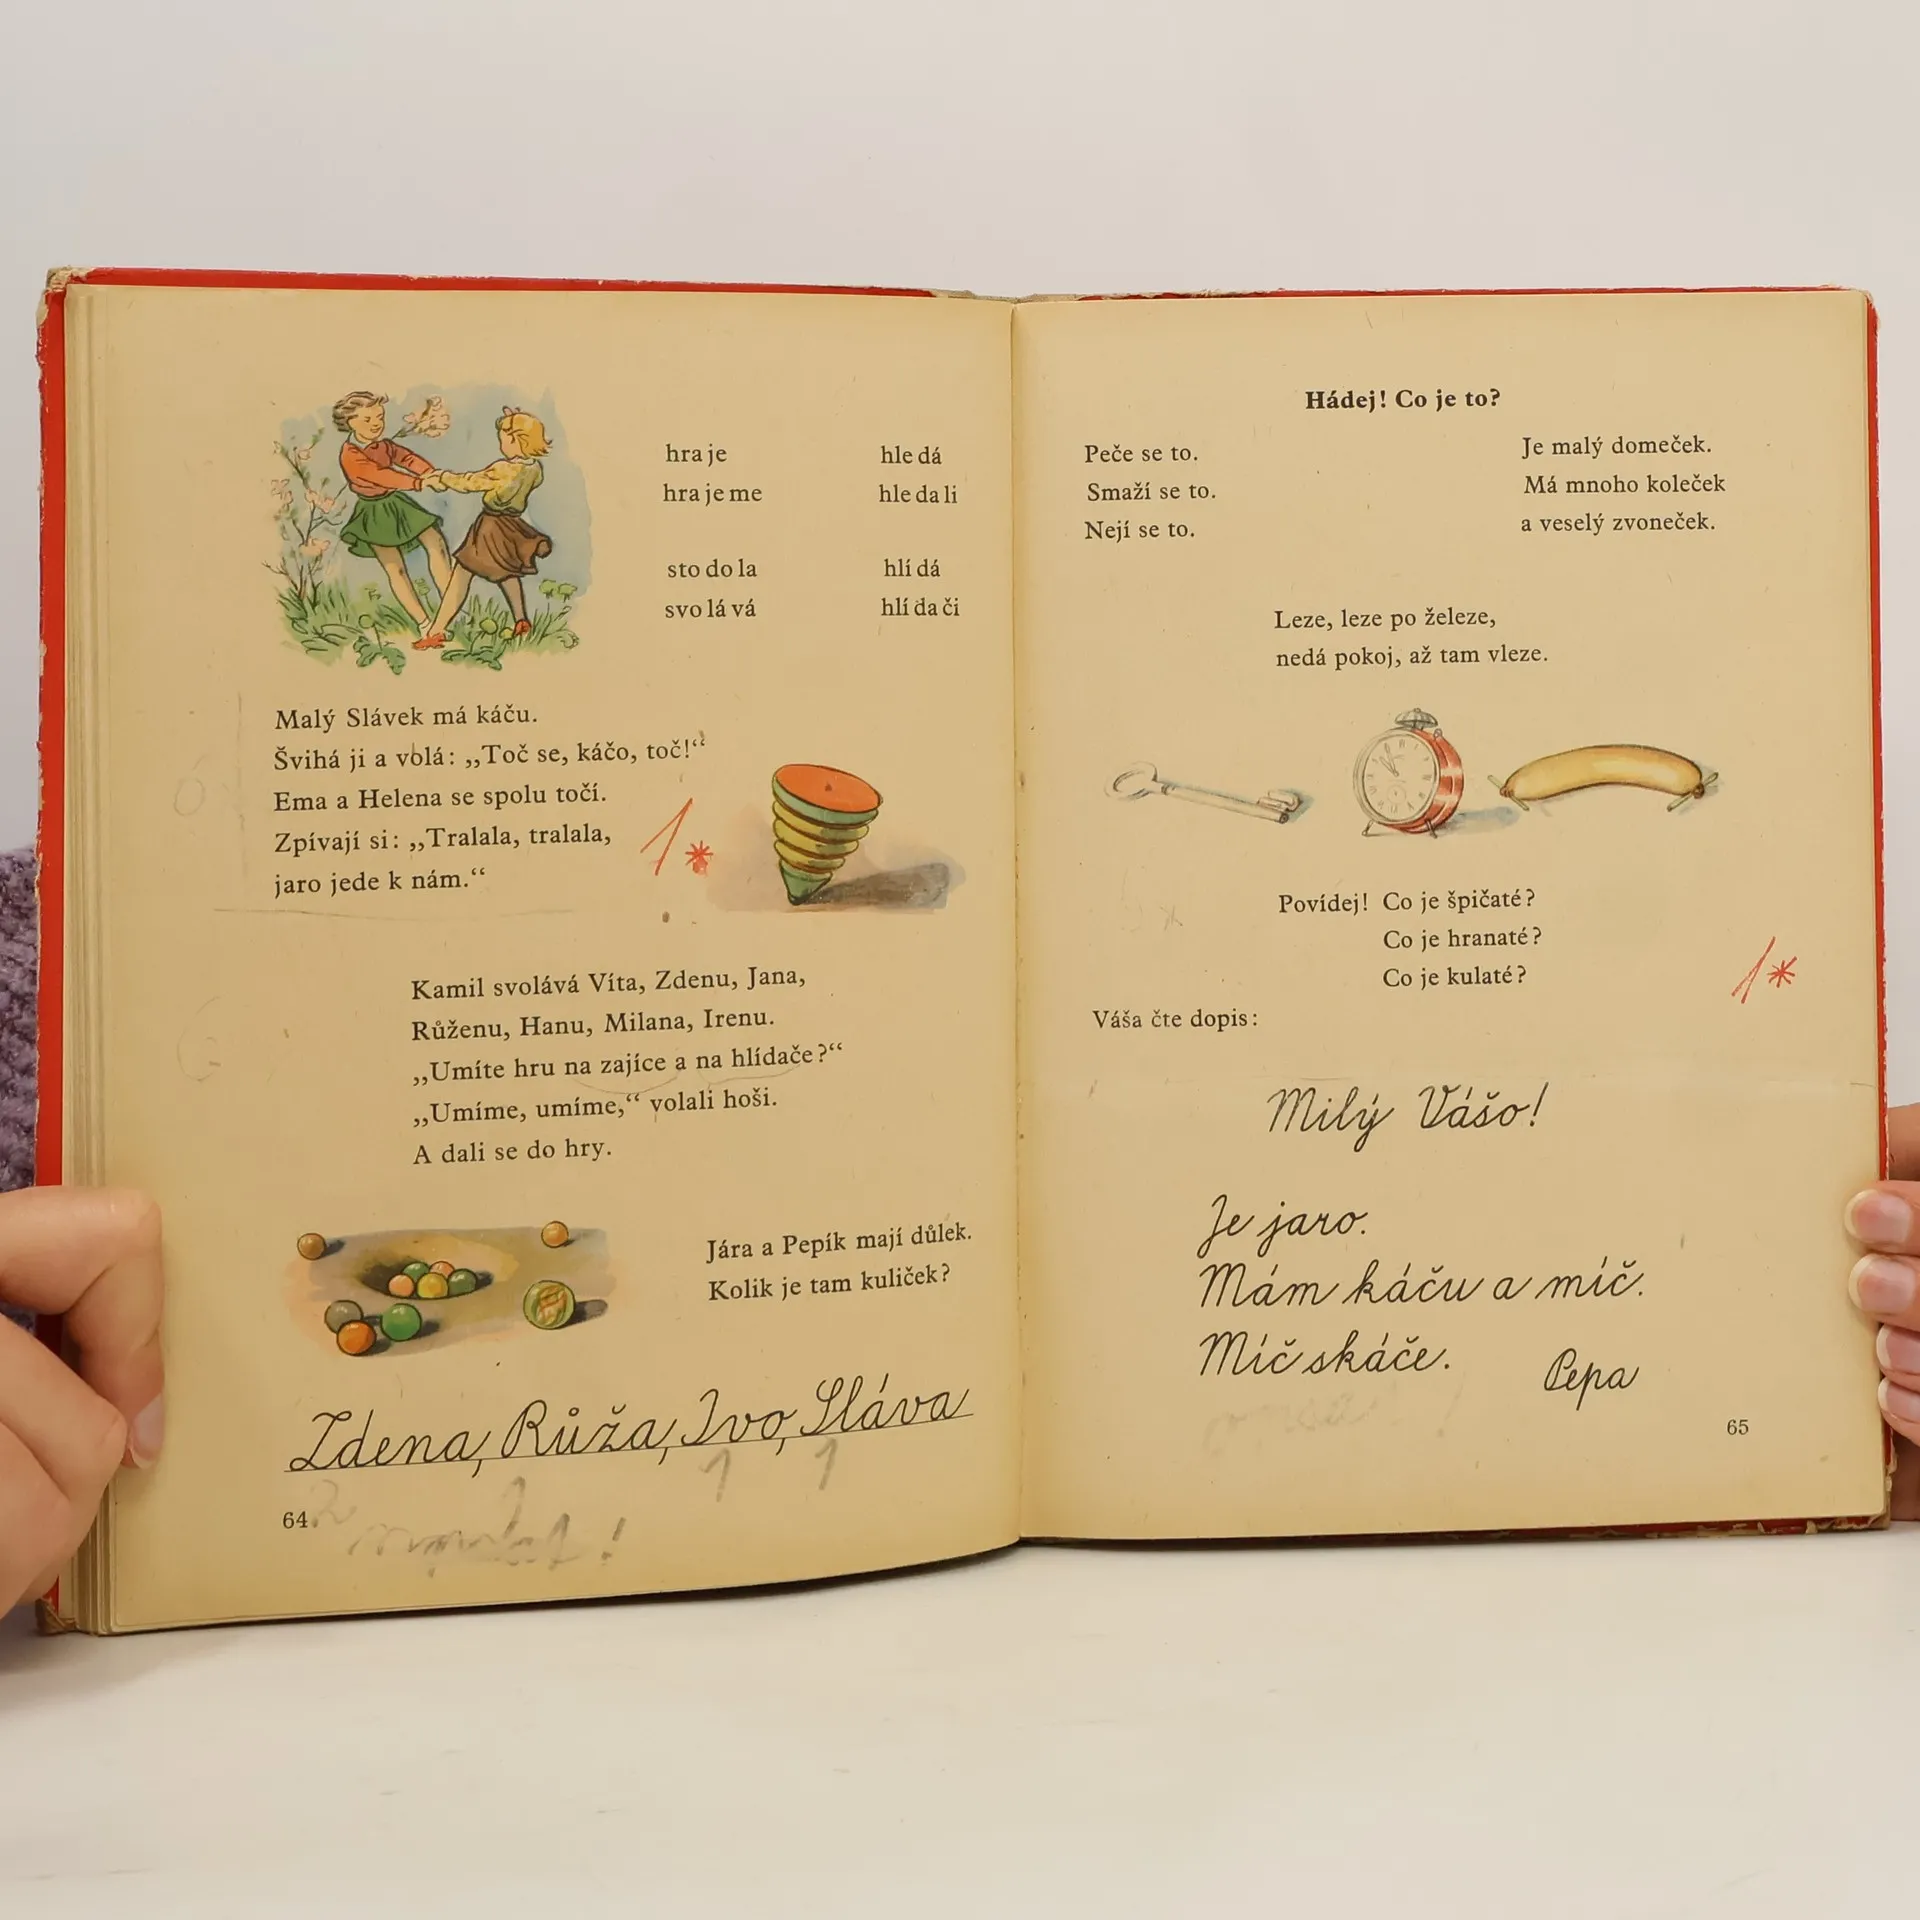 hra je
hra je me
sto do la
svo lá vá
hle dá
hle da li
hlí dá
hlí da či
Malý Slávek má káču.
Švihá ji a volá: „Toč se, káčo, toč!“
Ema a Helena se spolu točí.
Zpívají si: „Tralala, tralala,
jaro jede k nám.“
1*
Kamil svolává Víta, Zdenu, Jana,
Růženu, Hanu, Milana, Irenu.
„Umíte hru na zajíce a na hlídače?“
„Umíme, umíme,“ volali hoši.
A dali se do hry.
Jára a Pepík mají důlek.
Kolik je tam kuliček?
Zdena, Růža, Ivo, Sláva
1 1
64
Hádej! Co je to?
Peče se to.
Smaží se to.
Nejí se to.
Je malý domeček.
Má mnoho koleček
a veselý zvoneček.
Leze, leze po železe,
nedá pokoj, až tam vleze.
Povídej! Co je špičaté?
Co je hranaté?
Co je kulaté?
1*
Váša čte dopis:
Milý Vášo!
Je jaro.
Mám káču a míč.
Míč skáče.
Pepa
65